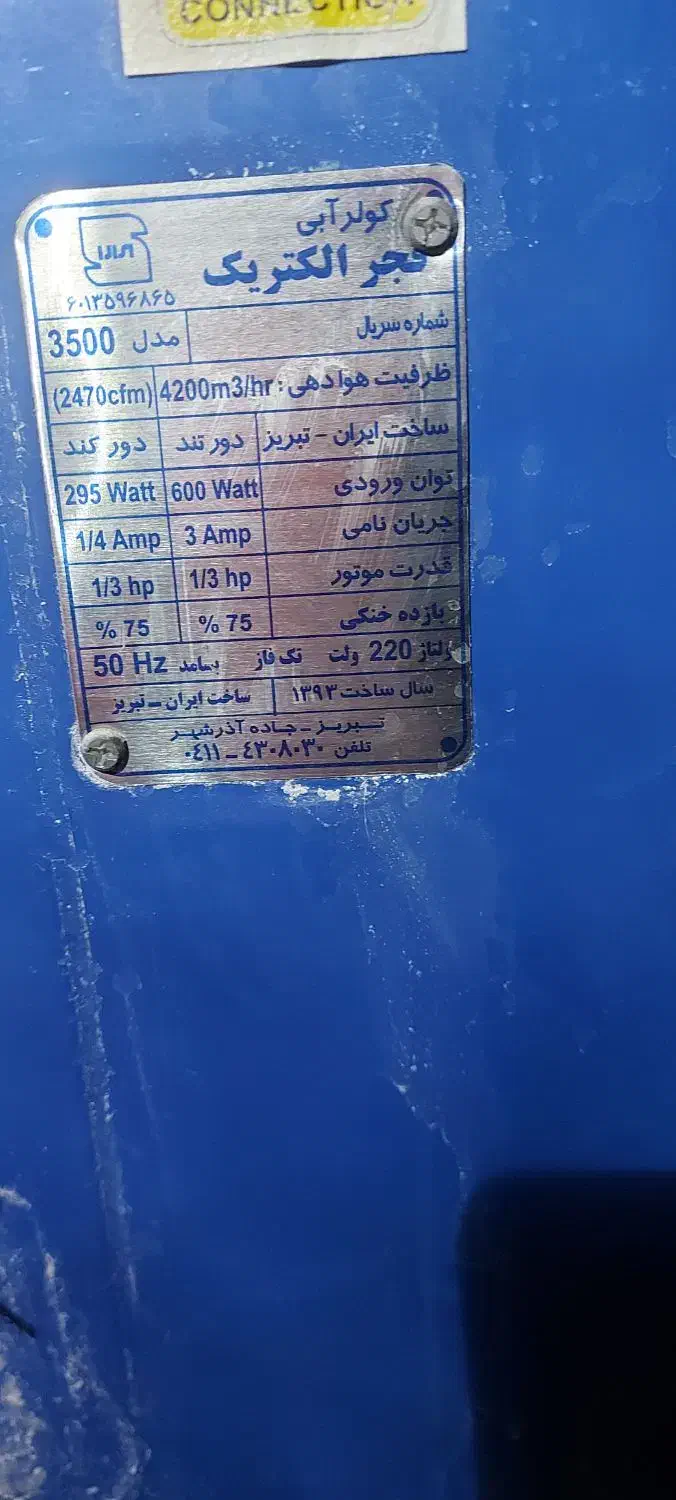 CONNECTION
کولر آبی
فجر الکتریک
۶۰۱۳۵۹۶۸۶۵
شماره سریال مدل 3500
ظرفیت هوادهی : 4200m3/hr (2470cfm)
ساخت ایران - تبریز دور تند دور کند
توان ورودی 600 Watt 295 Watt
جریان نامی 3 Amp 1/4 Amp
قدرت موتور 1/3 hp 1/3 hp
بازده خنکی 75 % 75 %
ولتاژ 220 ولت تک فاز بسامد 50 Hz
سال ساخت ۱۳۹۳ ساخت ایران - تبریز
تبریز - جاده آذرشهر
تلفن ۴۳۰۸۰۳۰ - ۰۴۱۱